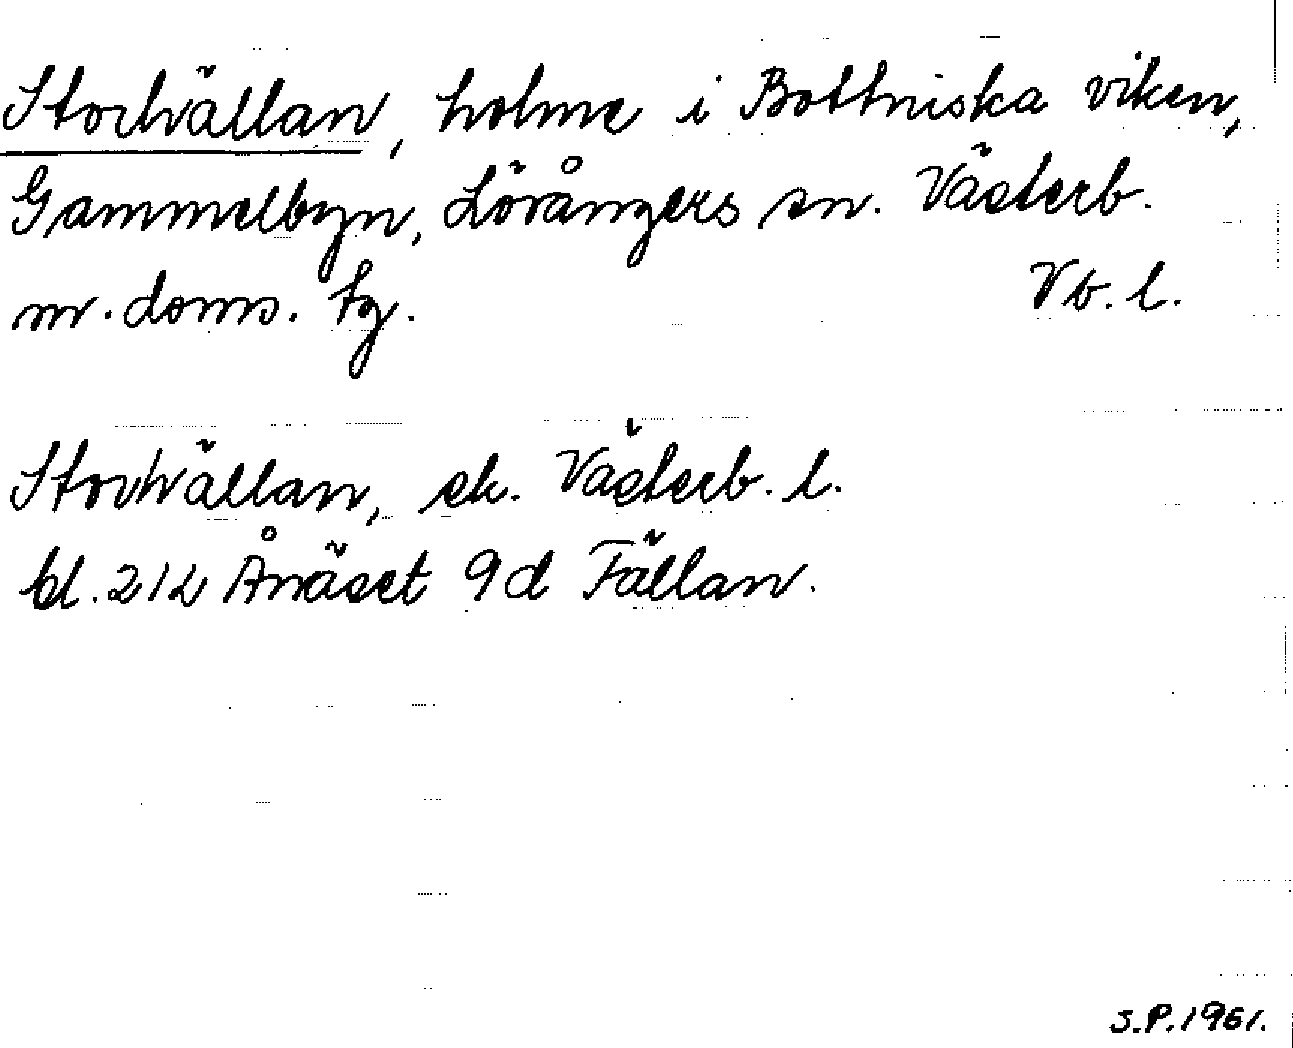 Storhällan, holme i Bottniska viken,
Gammelbyn, Lövångers sn. Västerb.
nr. doms. tg. Vb. l.
Storhällan, ek. Västerb. l.
bl. 212 Ånäset 9d Fällan.
S.P.1961.